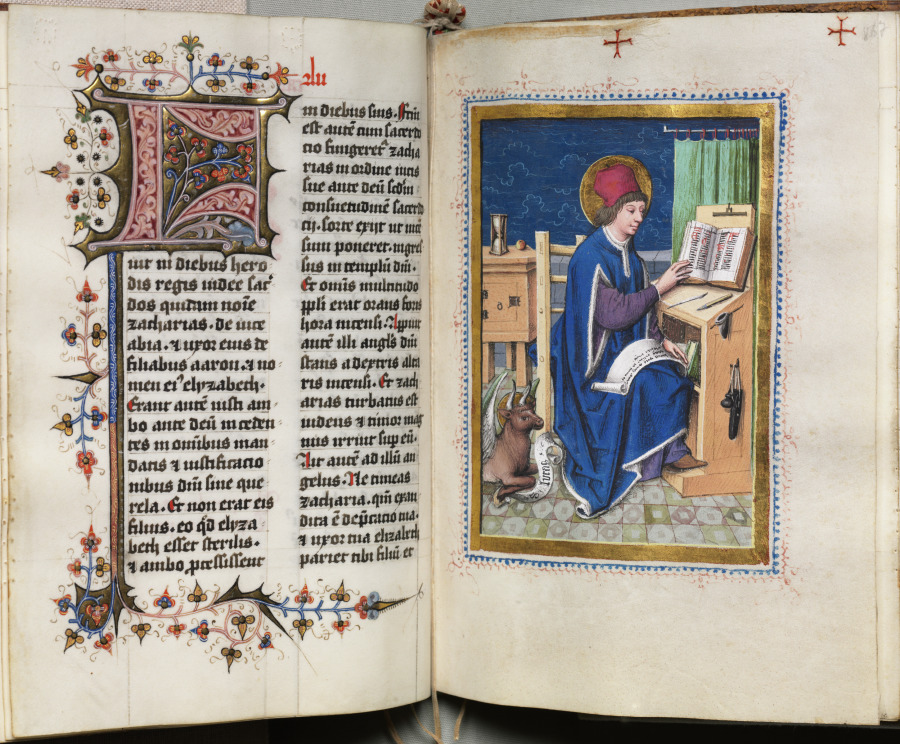 Fuit in diebus hero
dis regis iudee sac̄
dos quidam noīe
zacharias. de uice
abia. ⁊ uxor eius de
filiabus aaron. ⁊ no
men eiꝰ elyzabeth.
Erant autē iusti am
bo ante deū inceden
tes in omībus man
datis ⁊ iustificatio
nibus dn̄i sine que
rela. Et non erat eis
filius. eo qd̄ elyza
beth esset sterilis.
⁊ ambo p̄cessissent
in diebus suis.
est autē cum sacerdo
tio fungeret᷑ zacha
rias in ordine uicis
sue ante deū scd̄m
consuetudinē sacerdo
tij. sorte exijt ut incē
sum poneret. ingres
sus in templū dn̄i.
Et omīs multitudo
pp̄li erat orans foris
hora incensi.
autē illi angl̄s dn̄i
stans a dextris alta
ris incensi. Et zach
arias turbatus est
uidens ⁊ timor mag
nus irruit sup̄ eū.
Ait autē ad illū an
gelus. Ne timeas
zacharia. qm̄ exau
dita ē dep̄catio tua.
⁊ uxor tua elizabeth
pariet tibi filiū et